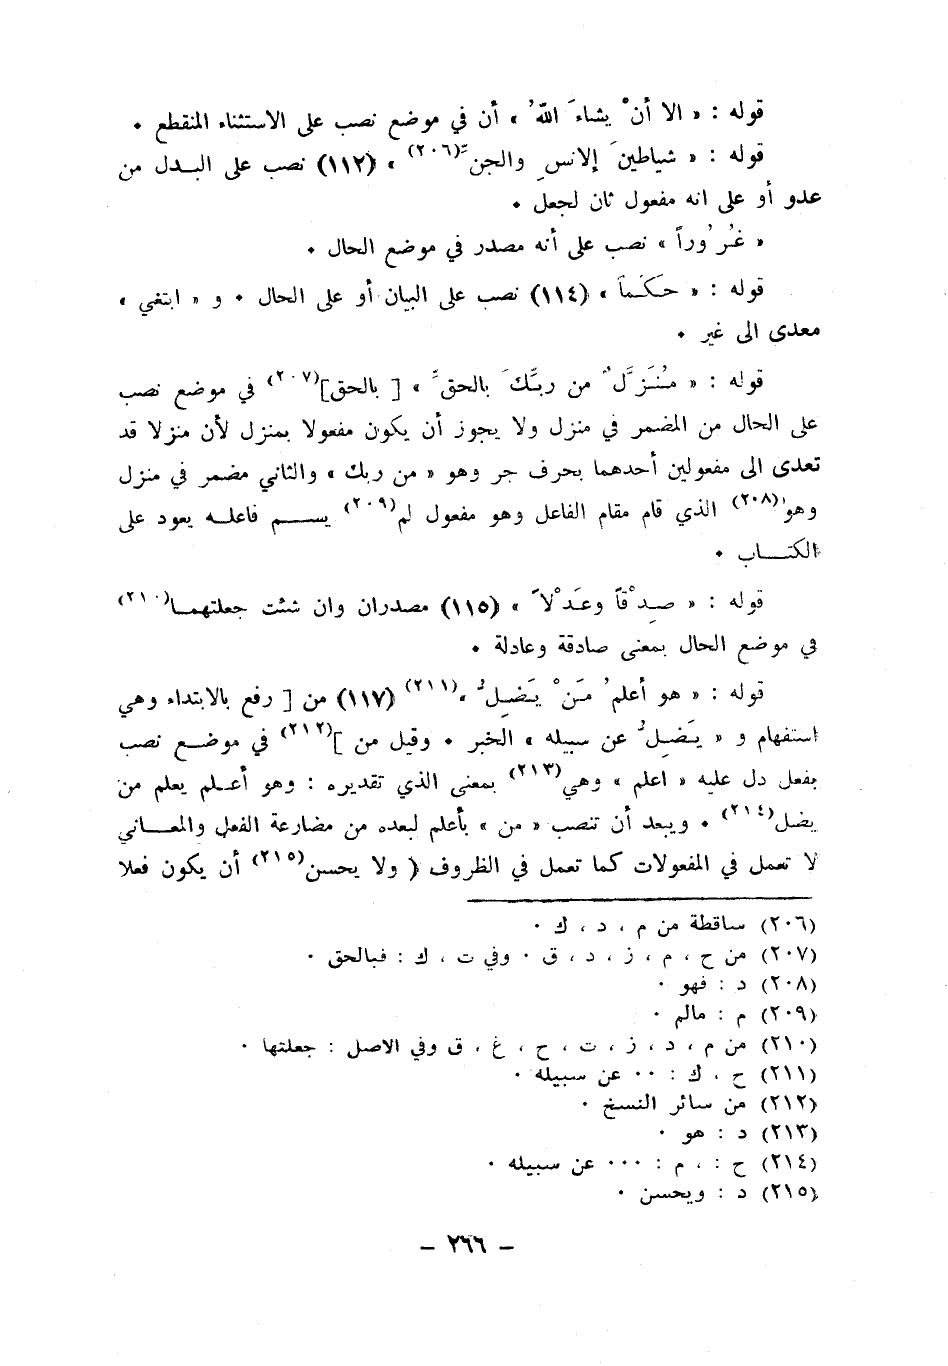 قوله : « الا أنْ يشاءَ اللّهُ » أن في موضع نصب على الاستثناء المنقطع ٠
قوله : « شياطينَ إلانسِ والجنِّ(٢٠٦) » (١١٢) نصب على البـدل من
عدو أو على انه مفعول ثان لجعل ٠
« غُرُوراً » نصب على أنه مصدر في موضع الحال ٠
قوله : « حَكَماً » (١١٤) نصب على البيان أو على الحال ٠ و « ابتغي »
معدى الى غير ٠
قوله : « مُنَزَّلٌ من ربِّكَ بالحقِّ » [ بالحق](٢٠٧) في موضع نصب
على الحال من المضمر في منزل ولا يجوز أن يكون مفعولا بمنزل لأن منزلا قد
تعدى الى مفعولين أحدهما بحرف جر وهو « من ربك » والثاني مضمر في منزل
وهو(٢٠٨) الذي قام مقام الفاعل وهو مفعول لم(٢٠٩) يســـم فاعلـه يعود على
الكتـــاب ٠
قوله : « صِدْقاً وعَدْلاً » (١١٥) مصدران وان شئت جعلتهمـا(٢١٠)
في موضع الحال بمعنى صادقة وعادلة ٠
قوله : « هو أعلمُ مَنْ يَضِلُّ »(٢١١) (١١٧) من [ رفع بالابتداء وهي
استفهام و « يَضِلُّ عن سبيله » الخبر ٠ وقيل من ](٢١٢) في موضـع نصب
بفعل دل عليه « اعلم » وهي(٢١٣) بمعنى الذي تقديره : وهو أعـلم يعلم من
يضل(٢١٤) ٠ ويبعد أن تنصب « من » بأعلم لبعده من مضارعة الفعل والمعـــاني
لا تعمل في المفعولات كما تعمل في الظروف ( ولا يحسن(٢١٥) أن يكون فعلا
(٢٠٦) ساقطة من م ، د ، ك ٠
(٢٠٧) من ح ، م ، ز ، د ، ق ٠ وفي ت ، ك : فبالحق ٠
(٢٠٨) د : فهو ٠
(٢٠٩) م : مالم ٠
(٢١٠) من م ، د ، ز ، ت ، ح ، غ ، ق وفي الاصل : جعلتها ٠
(٢١١) ح ، ك : ٠٠ عن سبيله ٠
(٢١٢) من سائر النسخ ٠
(٢١٣) د : هو ٠
(٢١٤) ح : ، م : ٠٠٠ عن سبيله ٠
(٢١٥) د : ويحسن ٠
– ٢٦٦ –